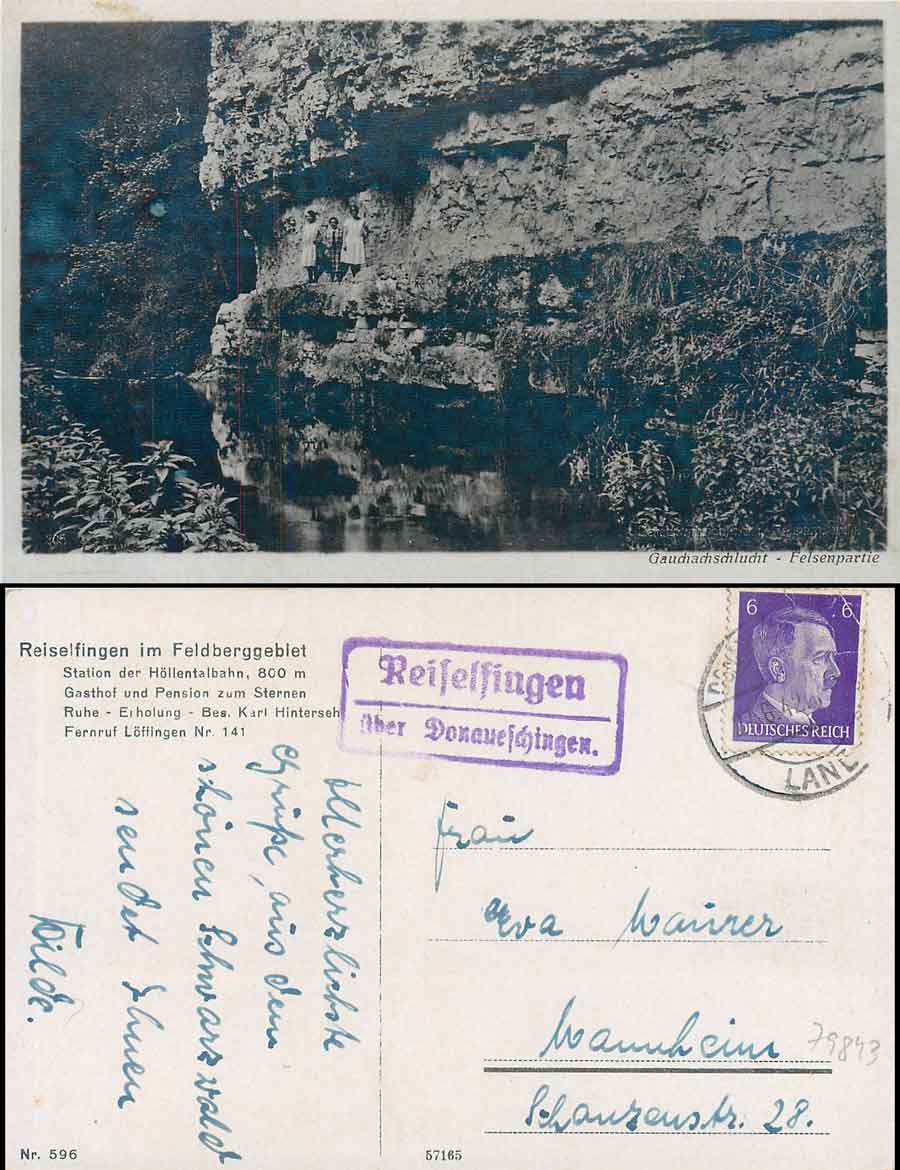 Gauchachschlucht - Felsenpartie
Reiselfingen im Feldberggebiet
Station der Höllentalbahn, 800 m
Gasthof und Pension zum Sternen
Ruhe - Erholung - Bes. Karl Hinterseh
Fernruf Löffingen Nr. 141
Reiselfingen
über Donaueschingen.
6 6
DEUTSCHES REICH
LAND
Allerherzlichste
Grüße, aus dem
schönen Schwarzwald
sendet Ihnen
Hilde.
Frau
Eva Maurer
Mannheim
79843
Schanzenstr. 28.
Nr. 596
57165